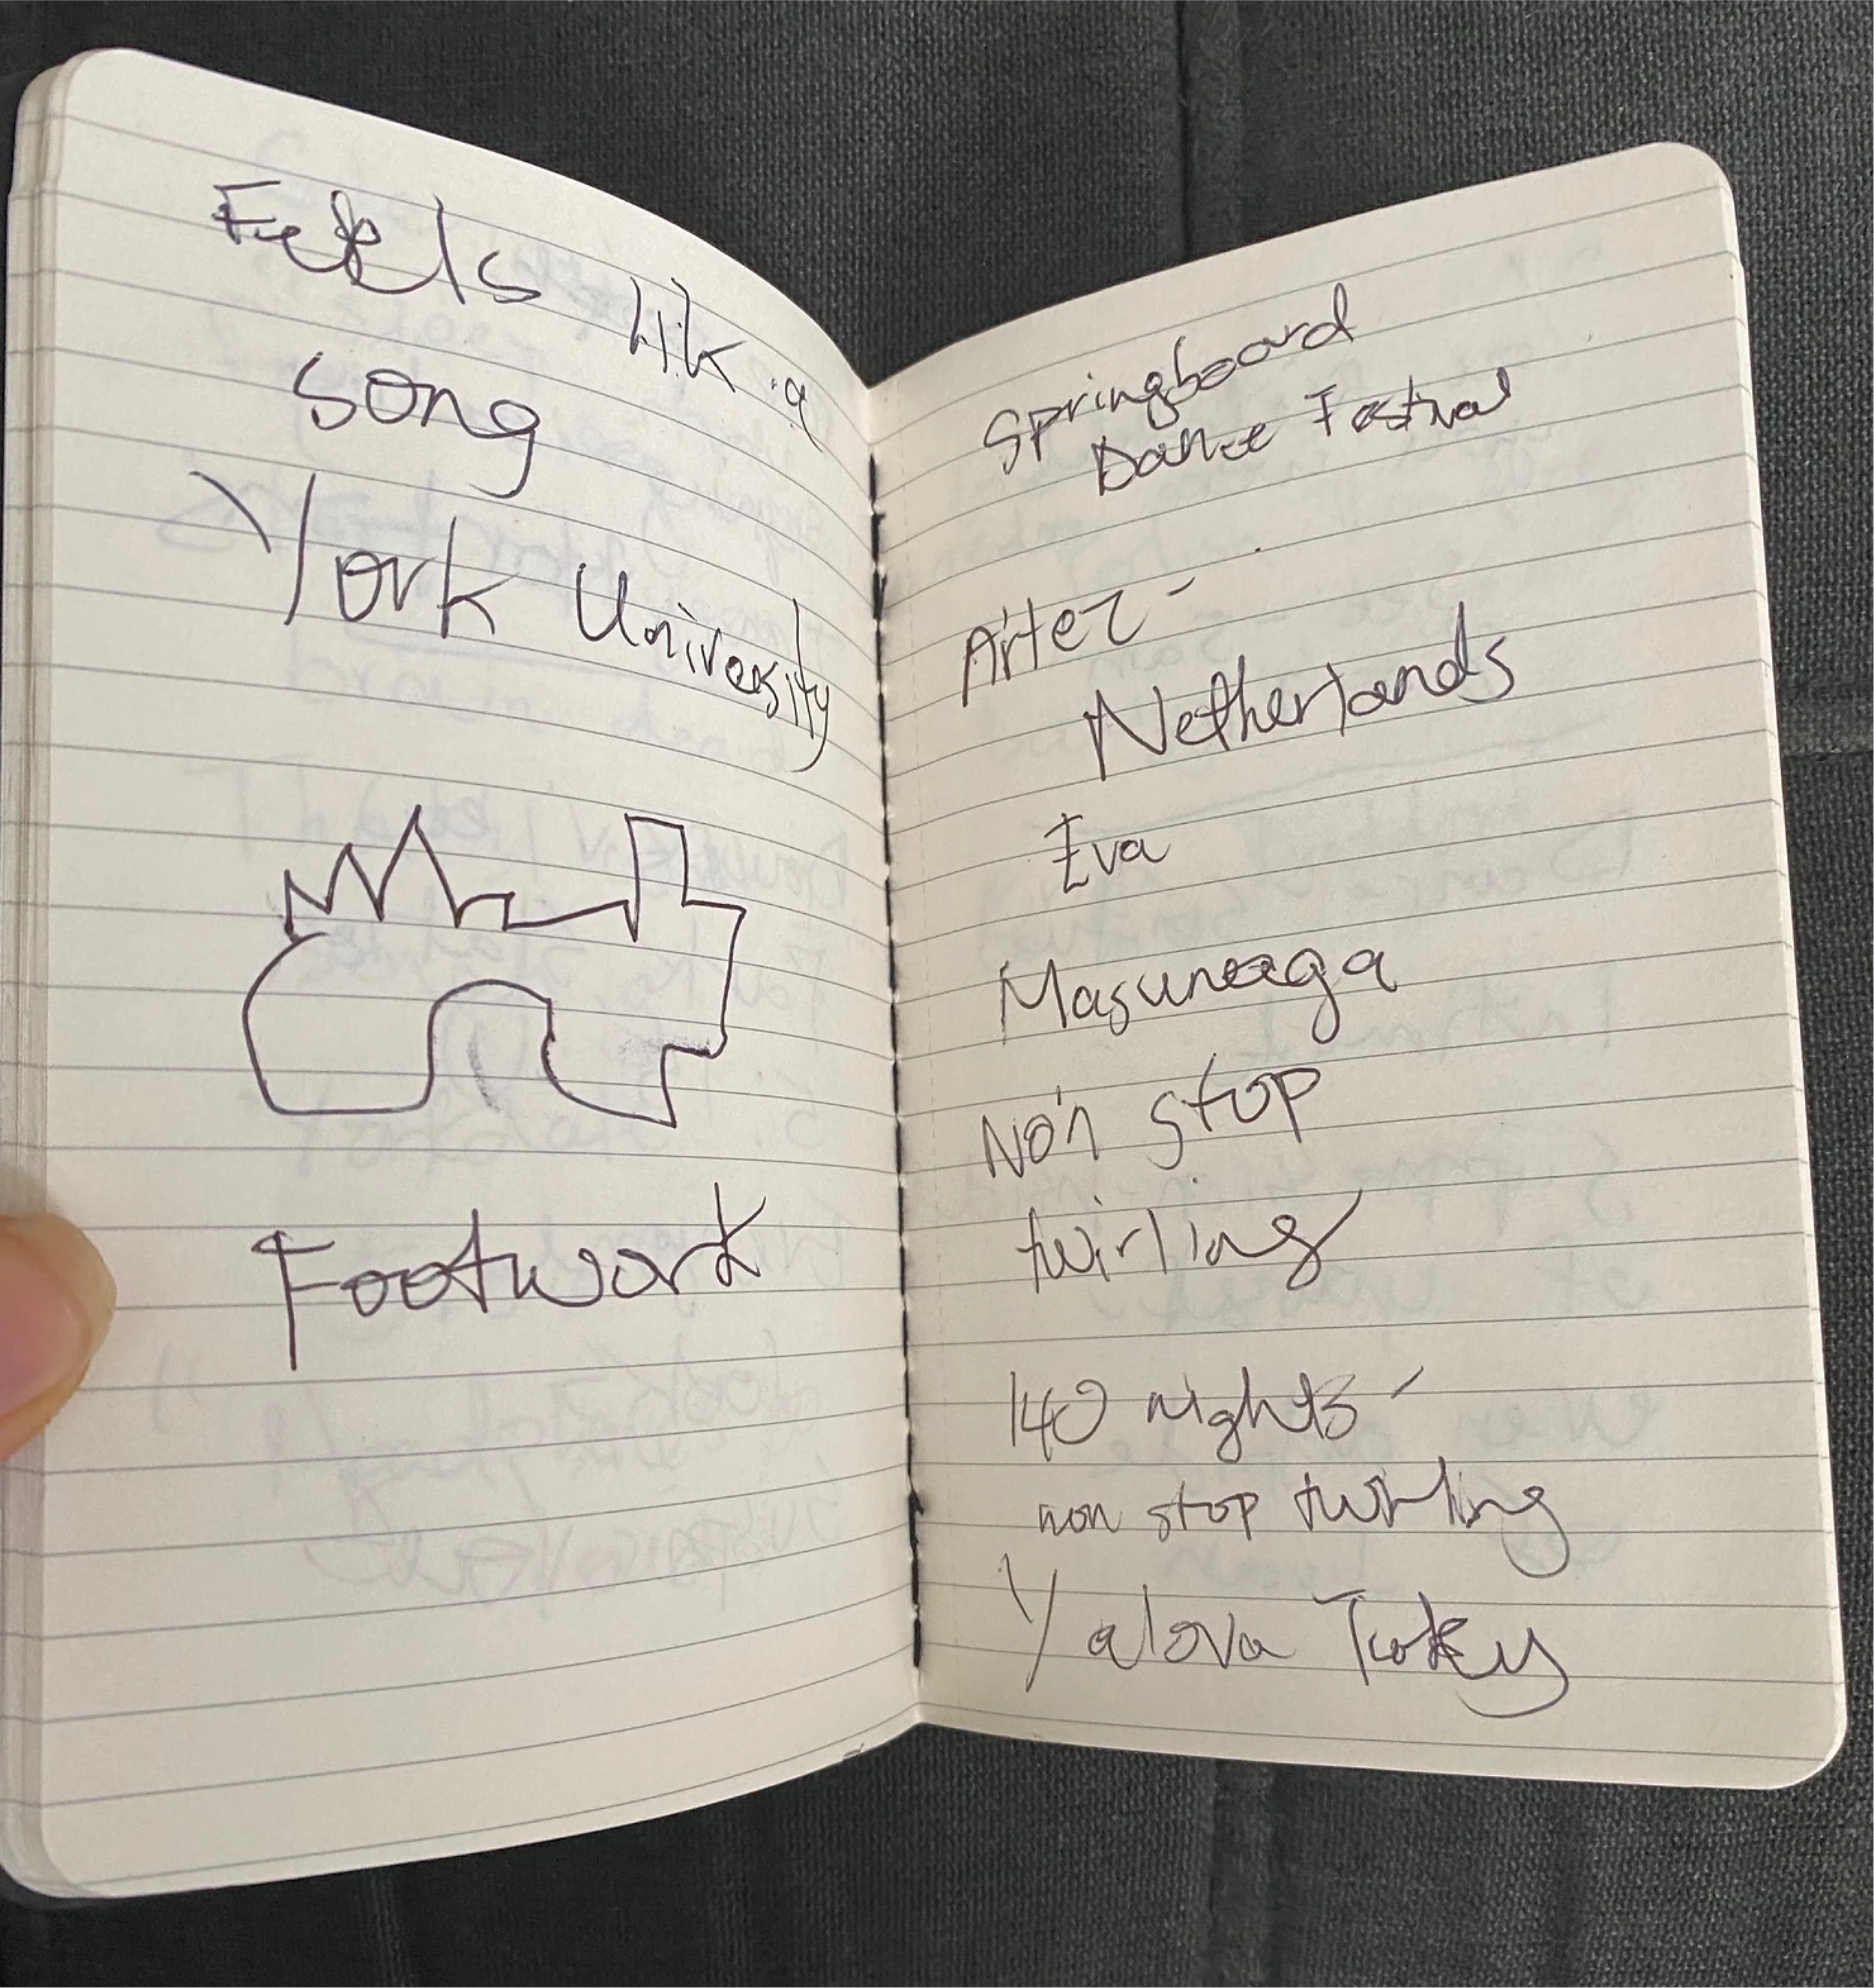 Feels lik a
song
York University
Footwork
Springboard
Dance Festival
Artez -
Netherlands
Eva
Non stop
twirling
140 nights -
non stop twirling
Yalova Turkey